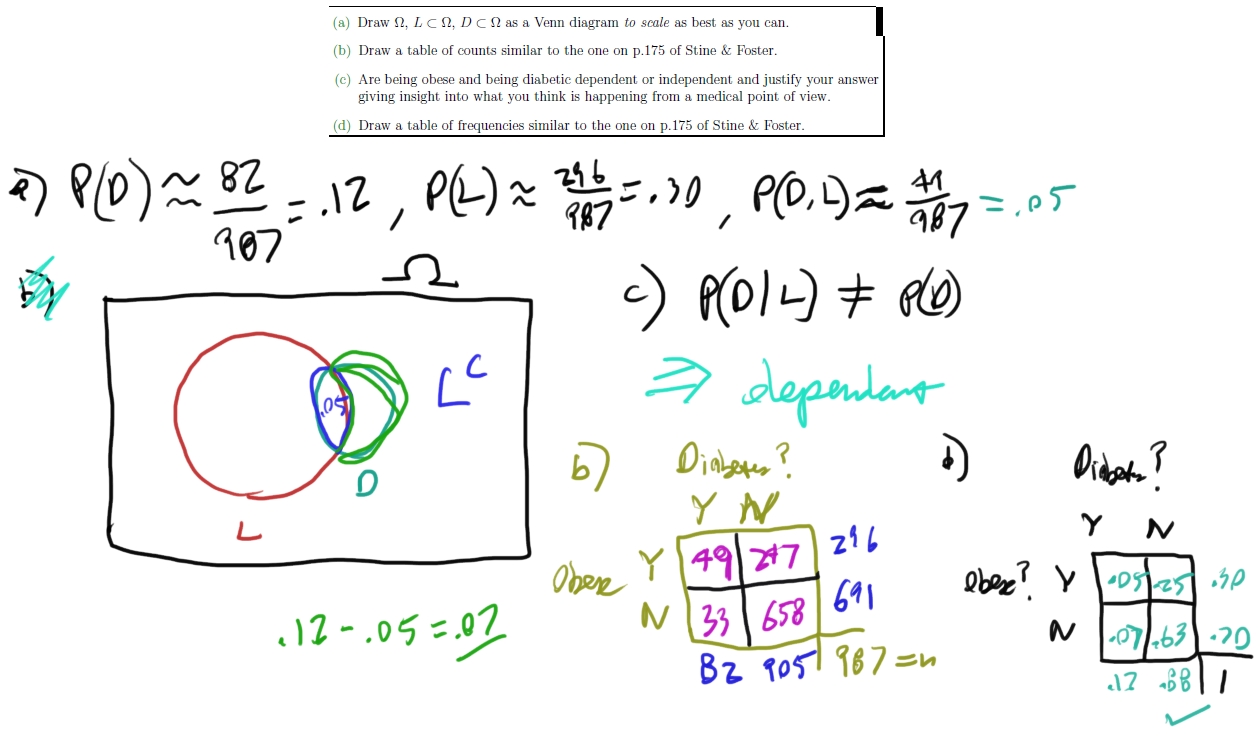 (a) Draw Ω, L ⊂ Ω, D ⊂ Ω as a Venn diagram to scale as best as you can.
(b) Draw a table of counts similar to the one on p.175 of Stine & Foster.
(c) Are being obese and being diabetic dependent or independent and justify your answer
giving insight into what you think is happening from a medical point of view.
(d) Draw a table of frequencies similar to the one on p.175 of Stine & Foster.
a) P(D) ≈ 82/987 = .12 , P(L) ≈ 296/987 = .30 , P(D,L) ≈ 49/987 = .05
Ω
c) P(D|L) ≠ P(D)
⇒ dependent
L^C
.05
D
L
.12 - .05 = .07
b) Diabetes?
Y N
Obese Y 49 247 296
N 33 658 691
82 905 987 = n
d) Diabetes?
Y N
Obese? Y .05 .25 .30
N .07 .63 .70
.12 .88 1